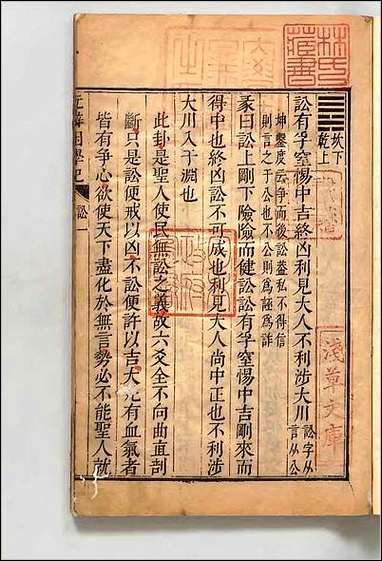 坎下
乾上
訟有孚窒惕中吉終凶利見大人不利涉大川訟字从言从公
坤鑿度云爭而後訟蓋私不得信
則言之于公也不公則為誣為詐
彖曰訟上剛下險險而健訟訟有孚窒惕中吉剛來而
得中也終凶訟不可成也利見大人尚中正也不利涉
大川入于淵也
此卦是聖人使民無訟之義故六爻全不向曲直剖
斷只是訟便戒以凶不訟便許以吉大凡有血氣者
皆有爭心欲使天下盡化於無言勢必不能聖人就
訟 一
林氏藏書
淺草文庫